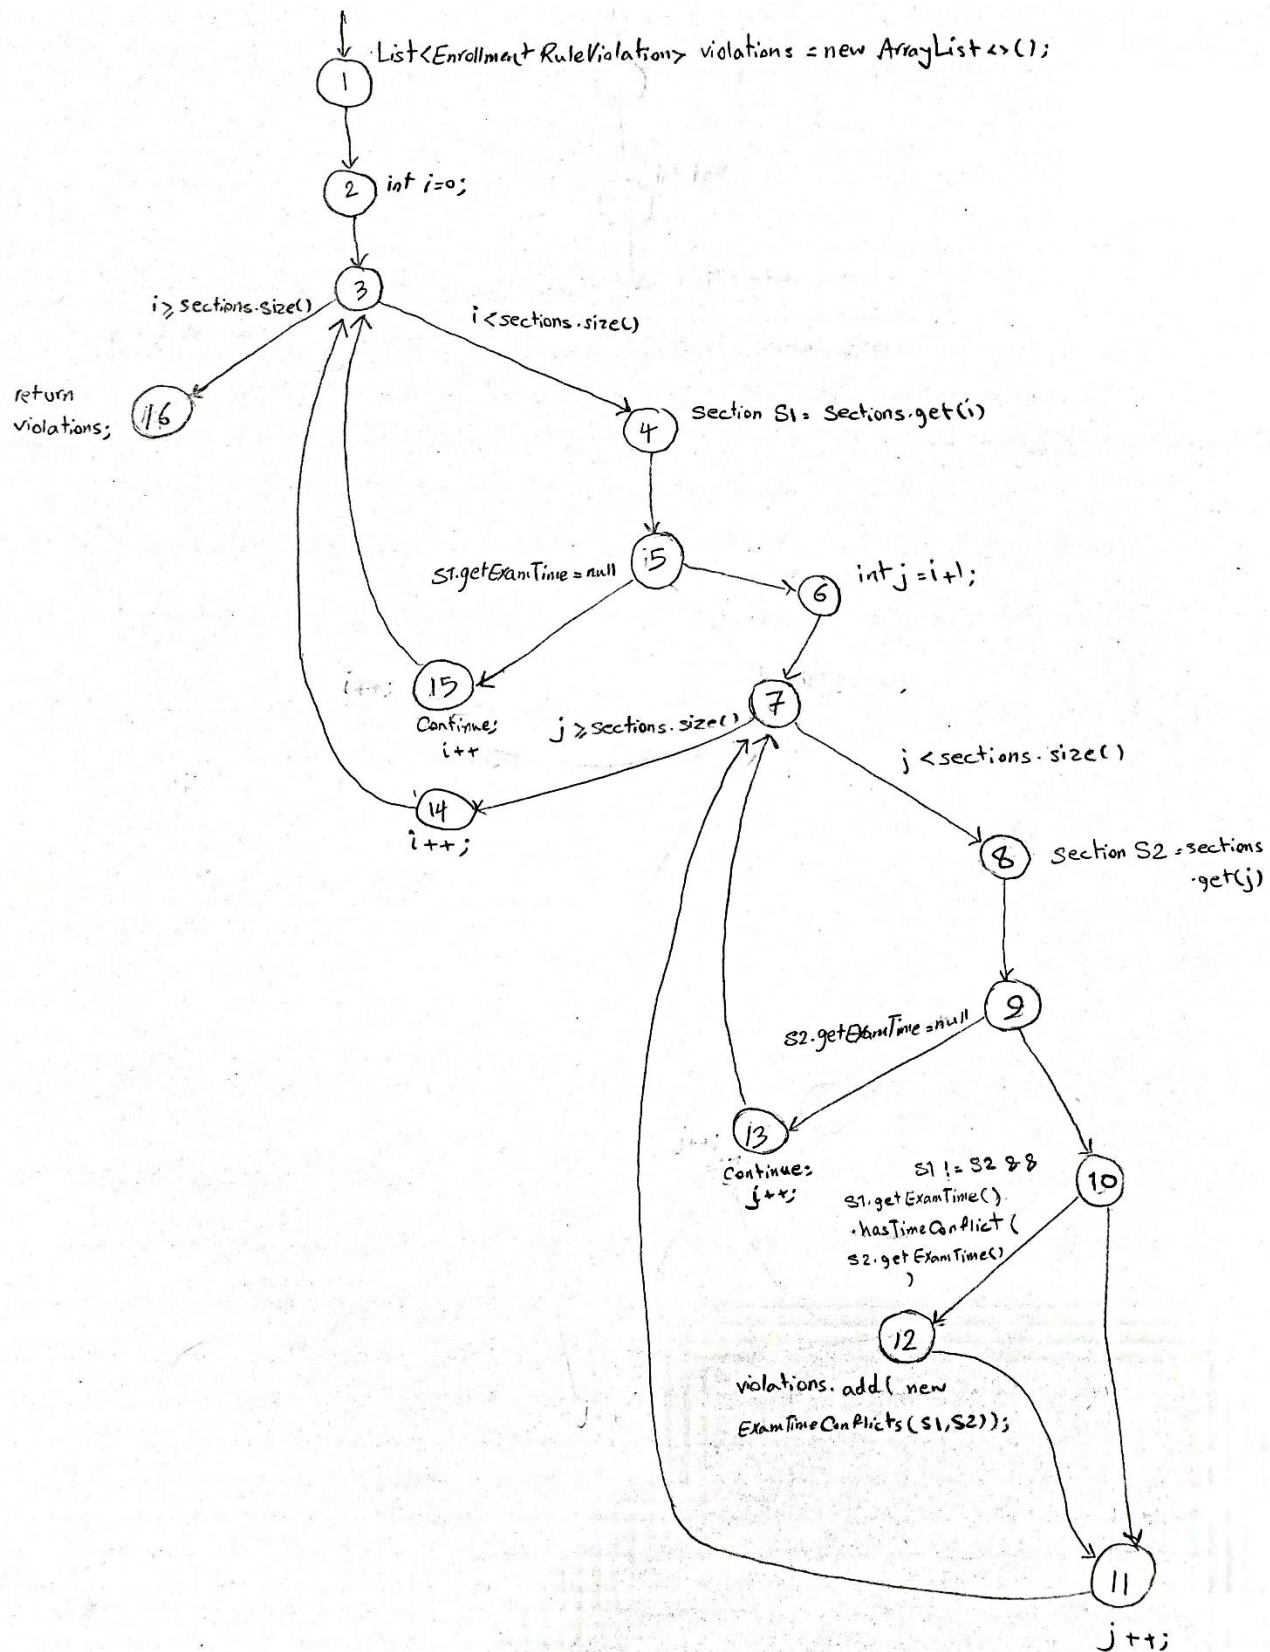 List<Enrollment RuleViolation> violations = new ArrayList<>();
1
2
int i=0;
3
i≥sections.size()
i<sections.size()
return
violations;
16
4
Section S1 = Sections.get(i)
5
S1.getExamTime=null
6
int j=i+1;
i++;
15
Continue;
i++
7
j≥sections.size()
j<sections.size()
14
i++;
8
Section S2 = sections
.get(j)
9
S2.getExamTime=null
13
Continue;
j++;
10
S1 != S2 &&
S1.getExamTime()
.hasTimeConflict(
S2.getExamTime()
)
12
violations.add( new
ExamTimeConflicts(S1,S2));
11
j++;